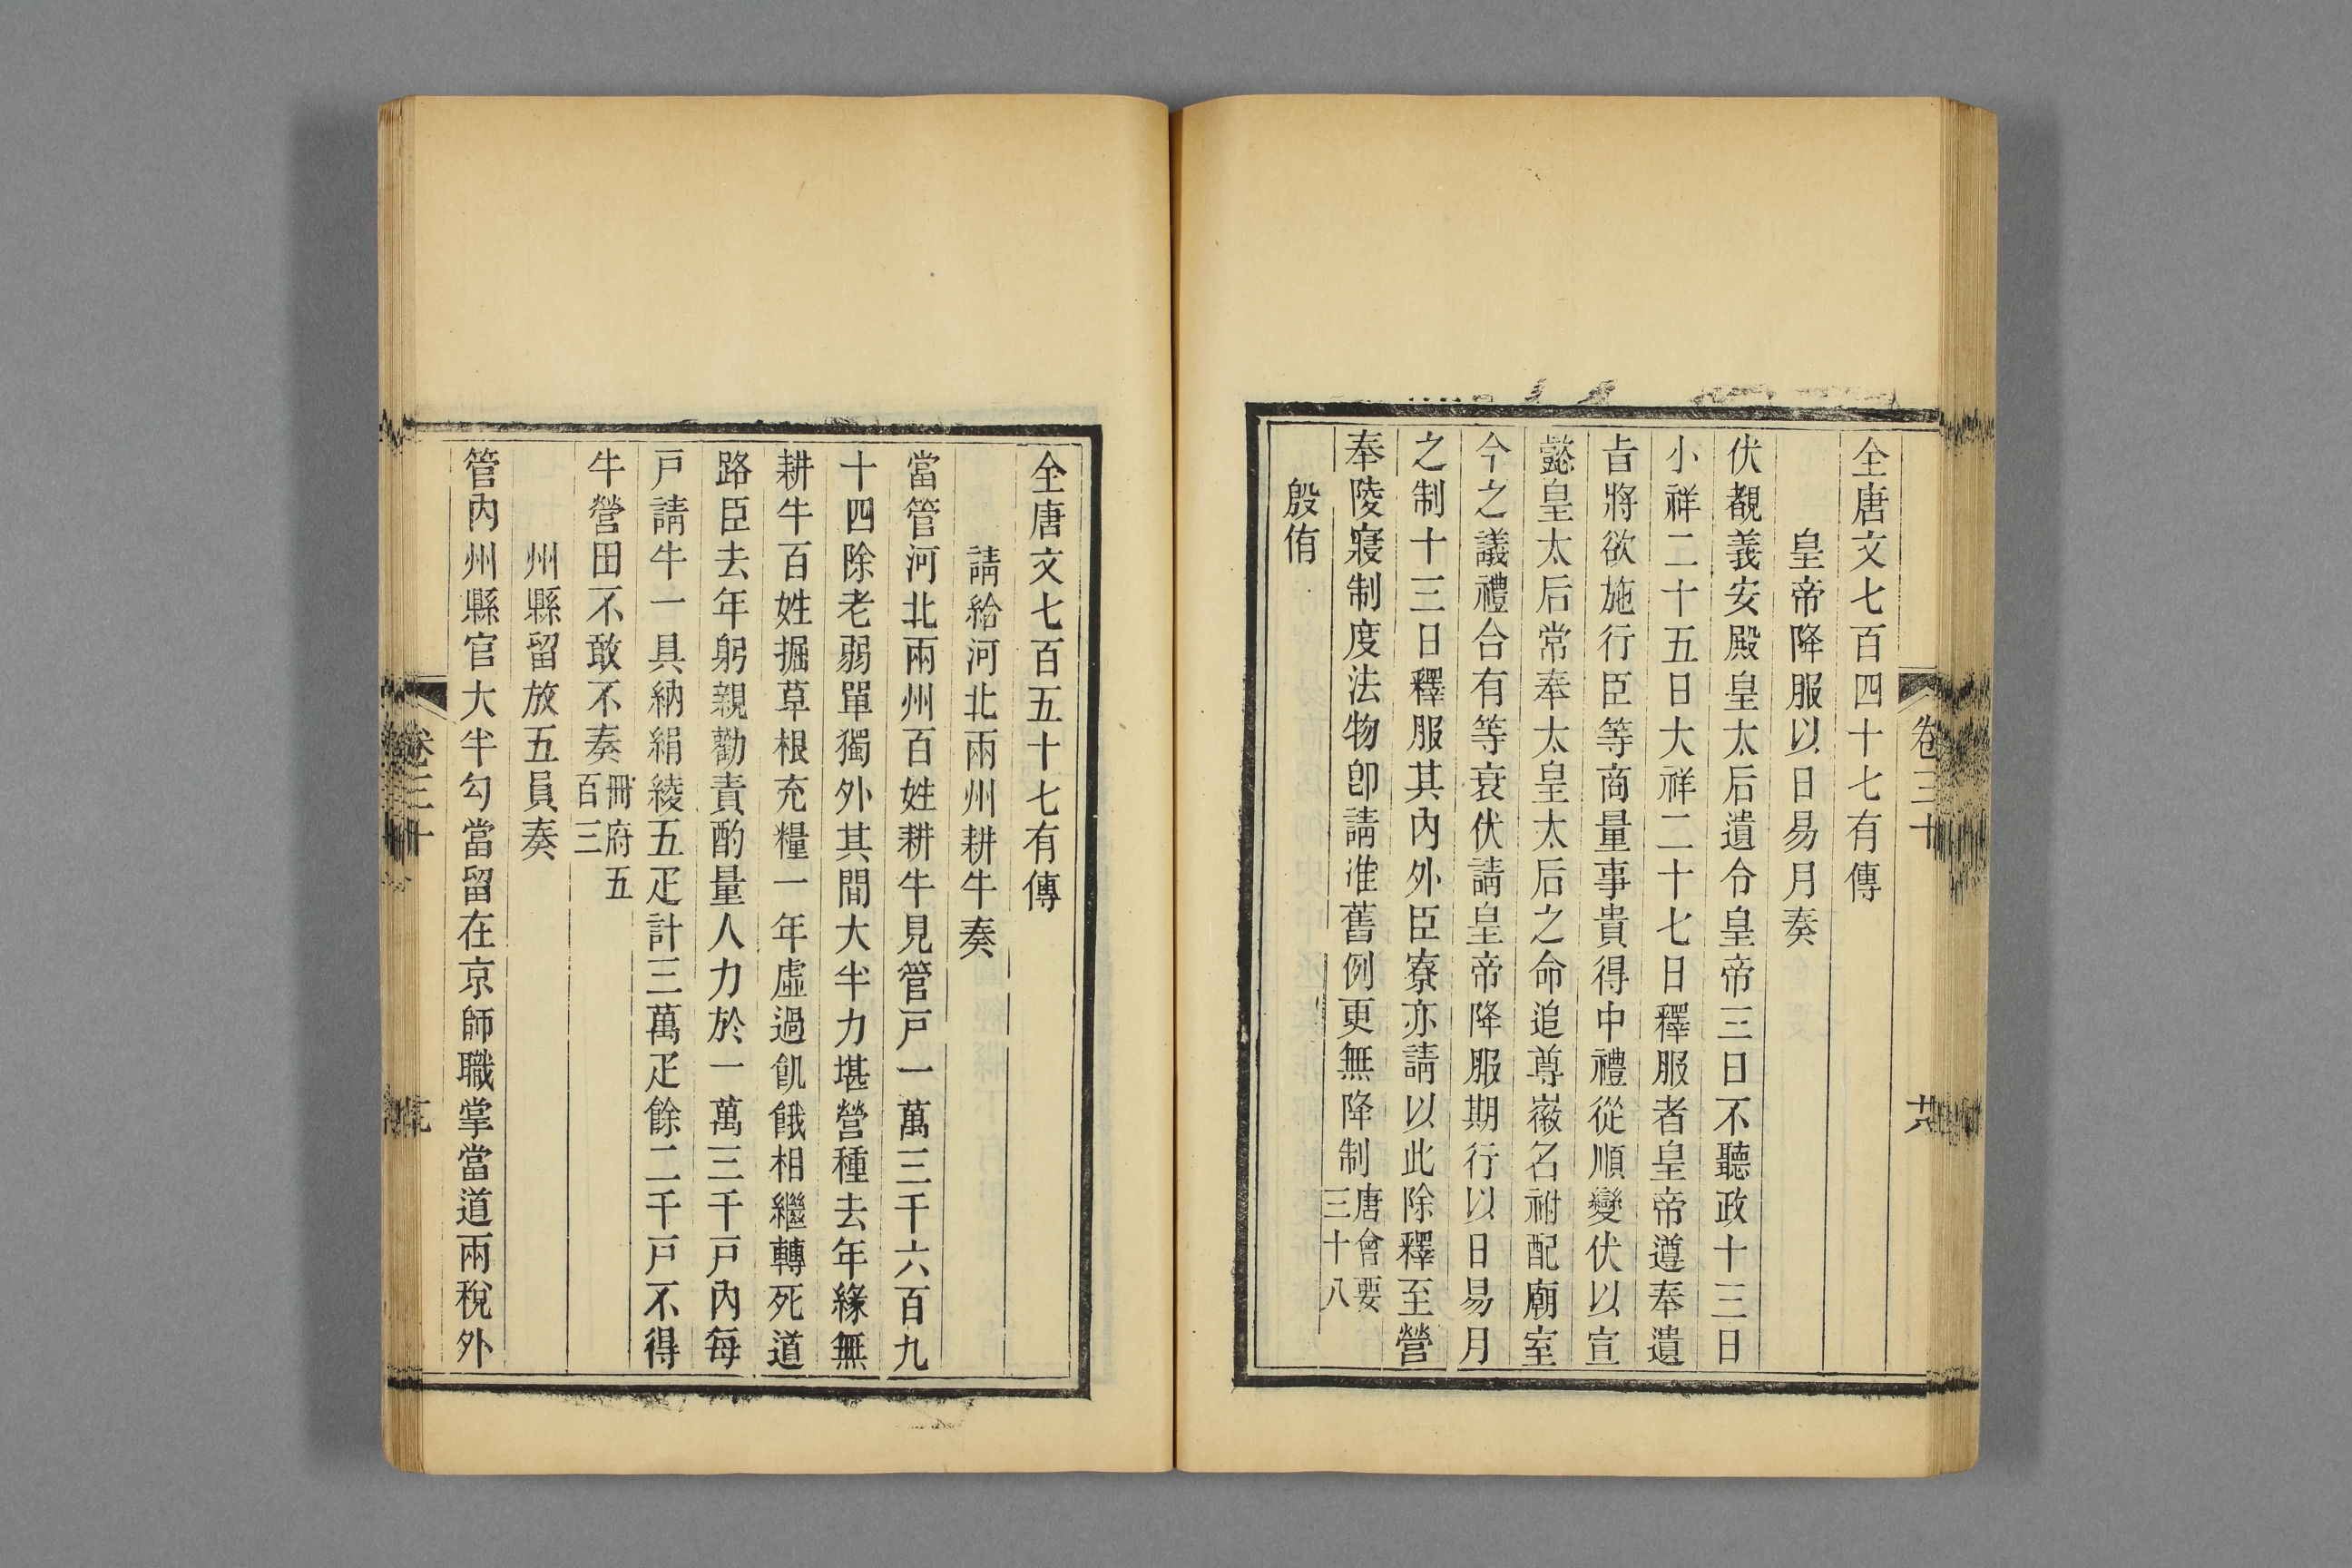 全唐文七百四十七有傳
皇帝降服以日易月奏
伏覩義安殿皇太后遺令皇帝三日不聽政十三日
小祥二十五日大祥二十七日釋服者皇帝遵奉遺
㫖將欲施行臣等商量事貴得中禮從順變伏以宣
懿皇太后常奉太皇太后之命追尊徽名祔配廟室
今之議禮合有等衰伏請皇帝降服期行以日易月
之制十三日釋服其內外臣寮亦請以此除釋至營
奉陵寢制度法物卽請准舊例更無降制唐會要三十八
殷侑
卷三十
廿八
全唐文七百五十七有傳
請給河北兩州耕牛奏
當管河北兩州百姓耕牛見管戸一萬三千六百九
十四除老弱單獨外其閒大半力堪營種去年緣無
耕牛百姓掘草根充糧一年虛過飢餓相繼轉死道
路臣去年躬親勸責酌量人力於一萬三千戸內每
戸請牛一具納絹綾五疋計三萬疋餘二千戸不得
牛營田不敢不奏冊府五百三
州縣留放五員奏
管內州縣官大半勾當留在京師職掌當道兩稅外
卷三十